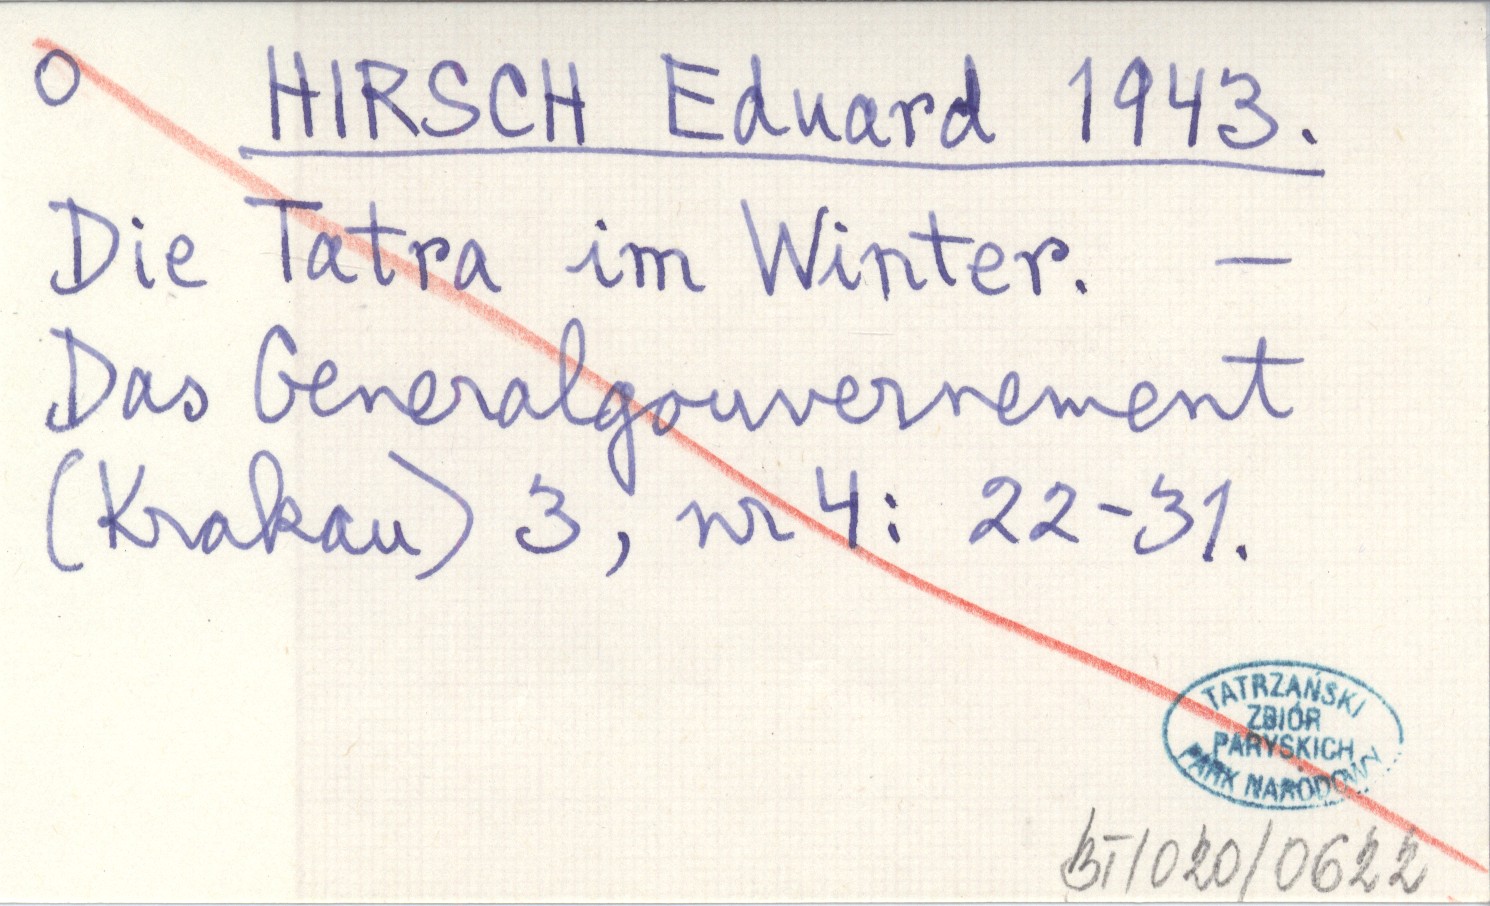 O HIRSCH Eduard 1943.
Die Tatra im Winter. –
Das Generalgouvernement
(Krakau) 3, nr 4: 22-31.
TATRZAŃSKI
ZBIÓR
PARYSKICH
PARK NARODOWY
BT/020/0622